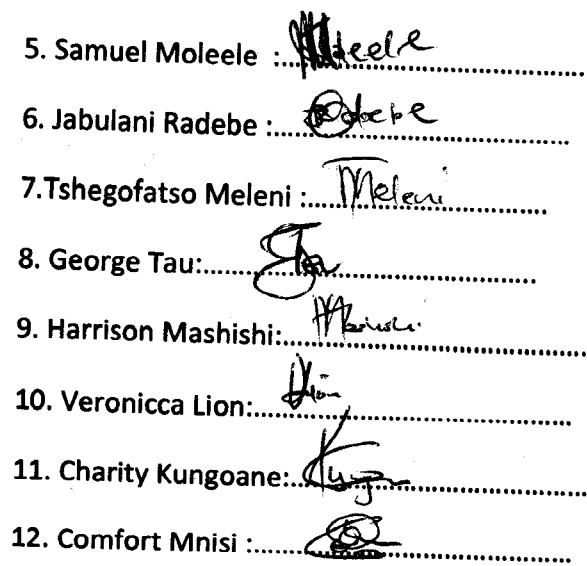 5. Samuel Moleele :.......... Moleele
6. Jabulani Radebe :..........
7.Tshegofatso Meleni :.......... TMeleni
8. George Tau:..........
9. Harrison Mashishi:..........
10. Veronicca Lion:.......... VLion
11. Charity Kungoane:..........
12. Comfort Mnisi :..........